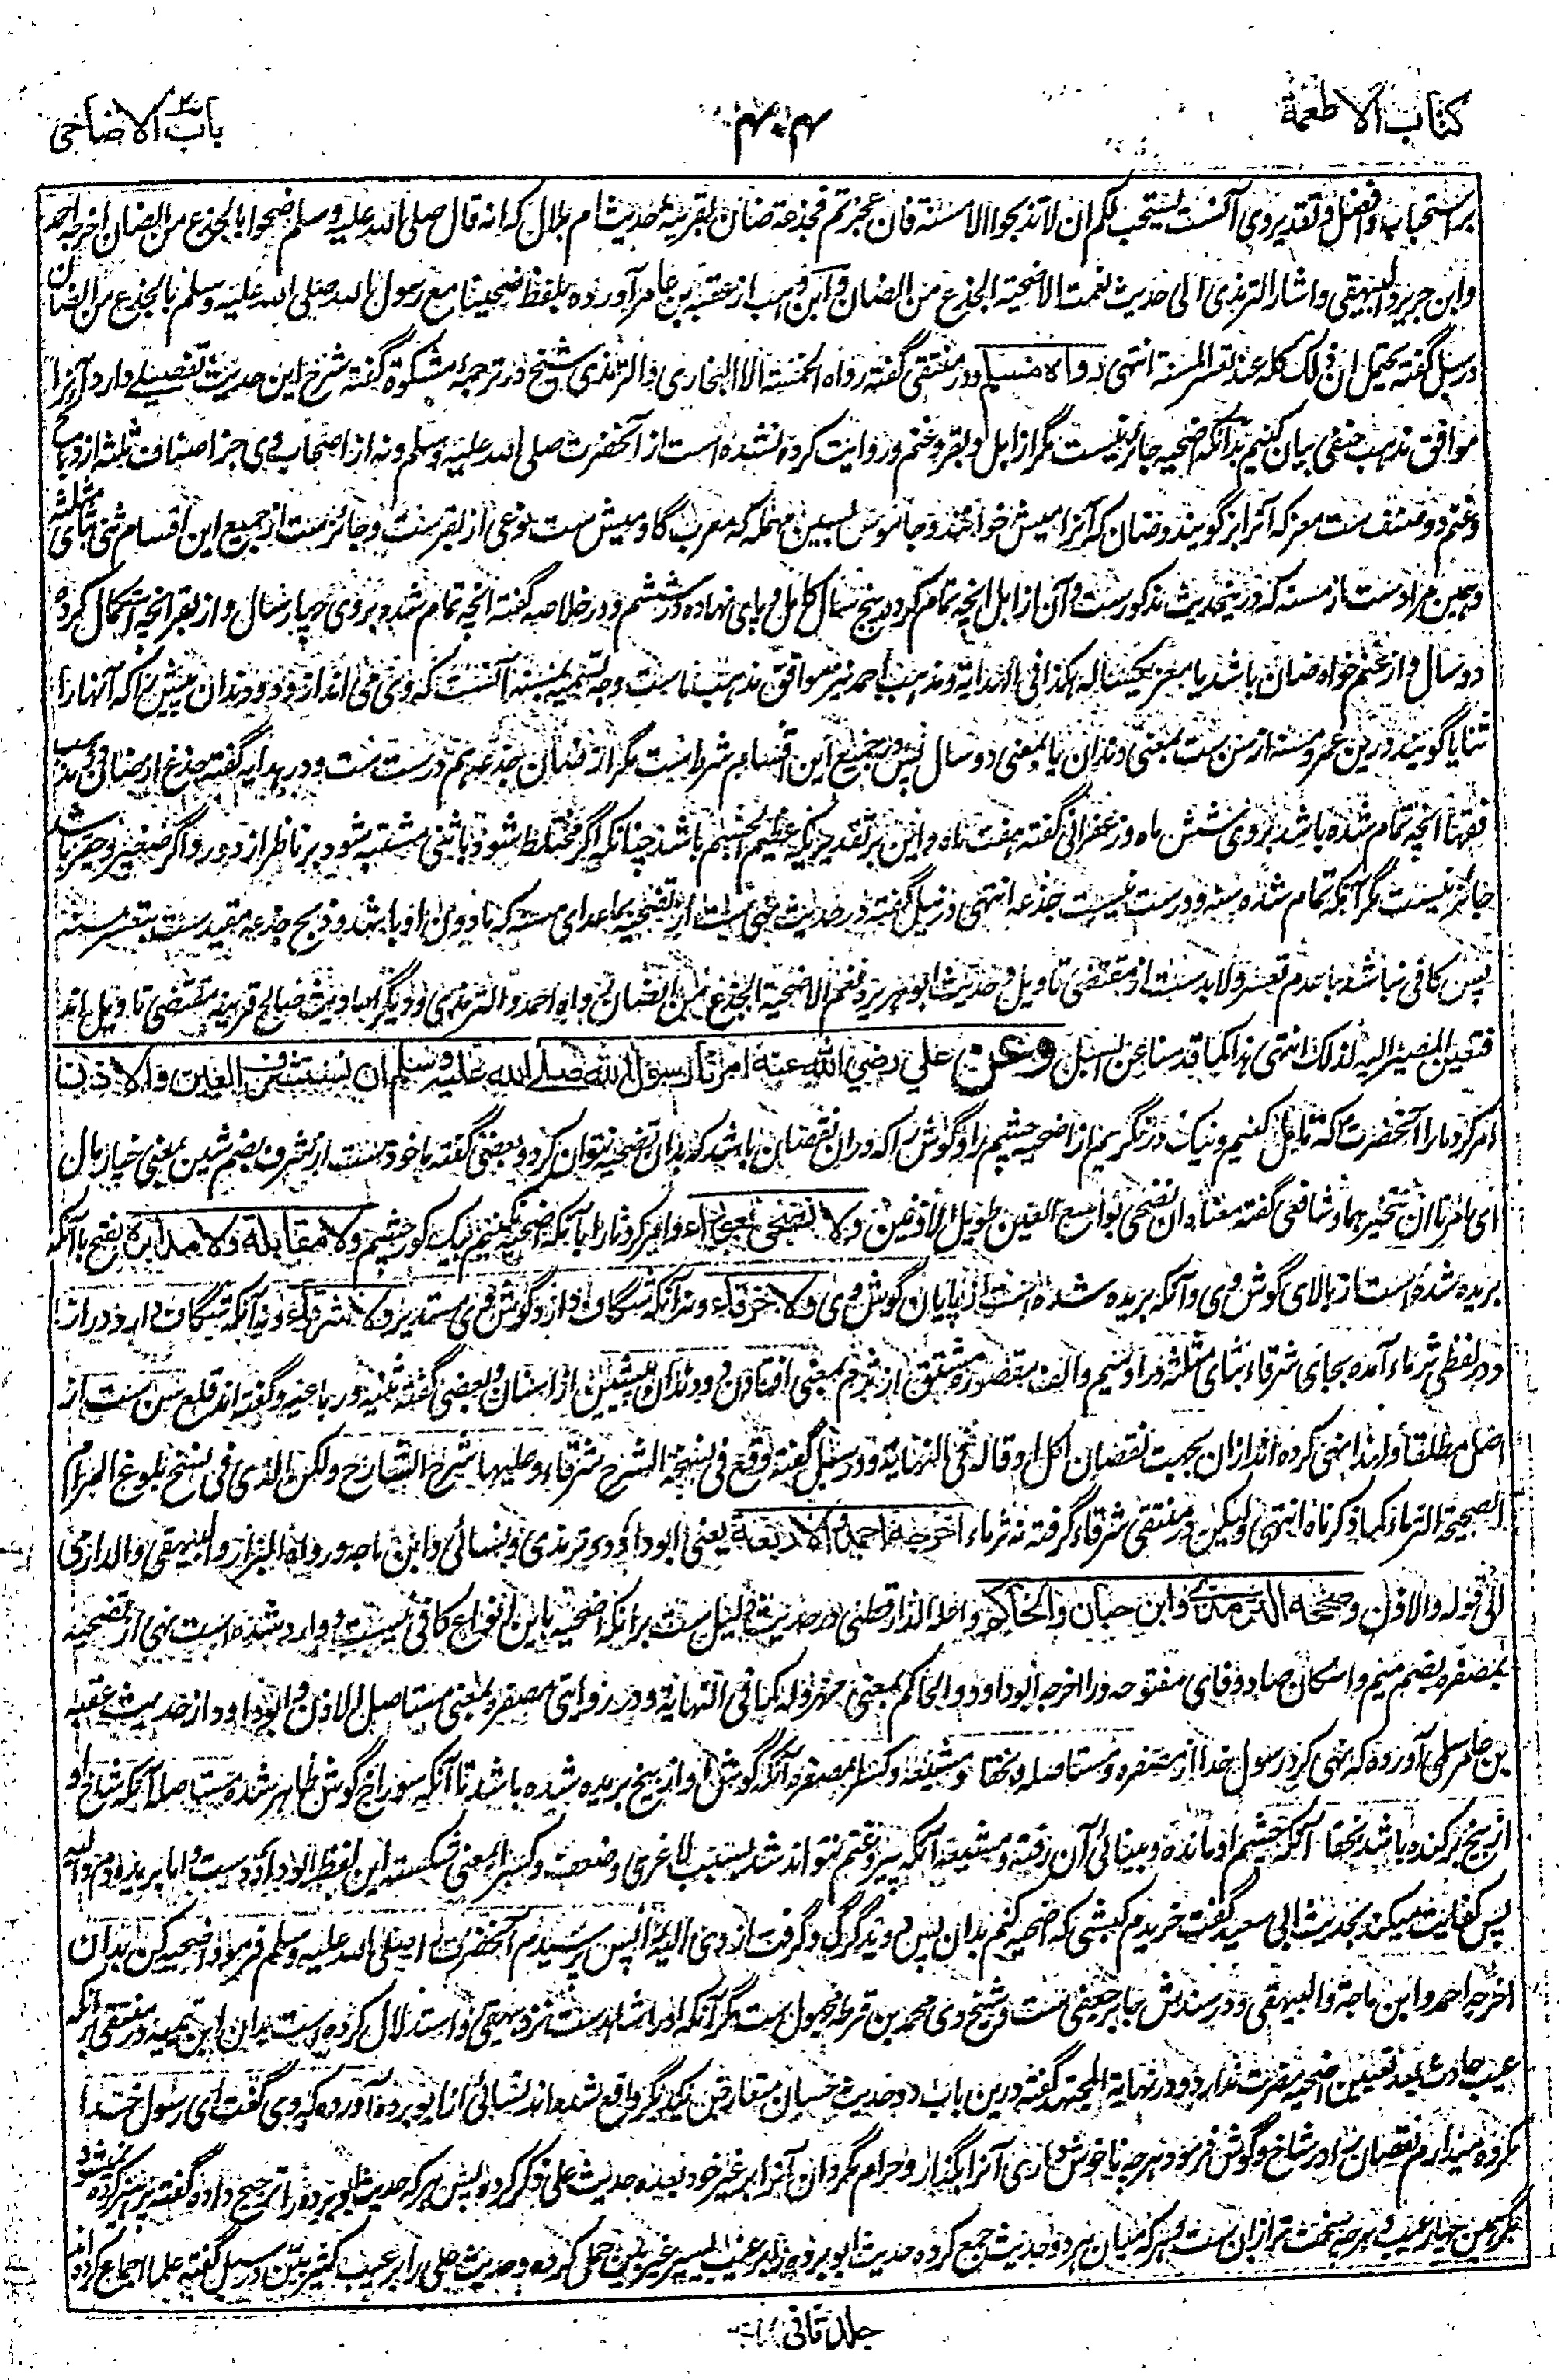 کتاب الاطعمة
۴۰۴
باب الاضاحی
بر استحباب و افضل و تقدیر وی آنست یستحب لکم ان لا تذبحوا الا مسنة فان عجزتم فجذعة ضان بقرینۀ حدیث ام بلال که انه قال صلی الله علیه وسلم ضحوا بالجذع من الضان اخرجه احمد
وابن جریر والبیهقی واشار الترمذی الی حدیث نعمت الاضحیة الجذع من الضان وابن وهب از عقبه بن عامر آورده بلفظ ضحینا مع رسول الله صلی الله علیه وسلم بالجذع من الضان
در سبل گفته یحتمل ان ذلک کله عند تعسر المسنة انتهی رواه مسلم و در منتقی گفته رواه الخمسة الا البخاری والترمذی و شیخ در ترجمۀ مشکوة گفته شرح این حدیث تفصیلے دارد آنرا
موافق مذهب حنفی بیان کنیم بدانکه اضحیه جائز نیست مگر از ابل و بقر و غنم و روایت کرده نشده است از آنحضرت صلی الله علیه وسلم و نه از اصحاب وی جز اصناف ثلثه از
و غنم دو صنف ست معز که آنرا بز گویند و ضان که آنرا میش خوانند و جاموس بسین مهمله که معرب گاومیش ست نوعی از بقر ست و جائز ست از جمیع این اقسام ثنی بثای مثلثه
و همین مراد ست از مسنه که درین حدیث مذکور ست و آن از ابل انچه تمام کرده پنج سال کامل و پای نهاده در ششم و در خلاصه گفته انچه تمام شد بروی چهار سال و از بقر انچه استکمال کرده
دو سال و از غنم خواه ضان باشد یا معز یکساله هکذا فی الهدایة و مذهب احمد نیز موافق مذهب ماست و وجه تسمیه بمسنه آنست که وی می اندازد دو دندان پیشین را که آنها را
ثنایا گویند درین عمر و مسنه از سن ست بمعنی دندان یا بمعنی دو سال پس در جمیع این اقسام شرط است مگر از ضان جذعه هم درست ست و در هدایه گفته جذع از ضان در مذهب
فقها انچه تمام شده باشد بروی شش ماه و زعفرانی گفته هفت ماه و این بر تقدیریکه عظیم الجسم باشد چنانکه اگر مختلط شود با ثنی مشتبه شود بر ناظر از دور و اگر صغیر و حقیر باشد
جائز نیست مگر آنکه تمام شده و درست نیست جذعه انتهی در نیل گفته در حدیث نهی ست از تضحیه بماعدای مسنه که مادون او باشد و ذبح جذعه مقید ست بتعسر مسنه
پس کافی نباشد با عدم تعسر و لابد ست از مقتضی تاویل و حدیث ابوهریره نعم الاضحیة الجذع من الضان رواه احمد والترمذی و دیگر احادیث صالح قرینه مقتضی تاویل اند
فتعین المصیر الیه لذلک انتهی هذا کما قدمنا عن السبل وعن علي رضي الله عنه امرنا رسول الله صلى الله عليه وسلم ان نستشرف العين والاذن
امر کرد ما را آنحضرت که تامل کنیم و نیک در نگریم از اضحیه چشم را و گوش را که دران نقصان باشد که بدان تضحیه نتوان کرد و بعضی گفته ماخوذ ست از شرف بضم شین بمعنی خیار مال
ای امرنا ان نتخیرهما و شافعی گفته معناه ان نضحی بواسع العین طویل الاذنین ولا نضحي بعوراء و امر کرد ما را بآنکه اضحیه نکنیم یک کور چشم ولا مقابلة ولا مدابرة بفتح با آنکه
بریده شده است از بالای گوش وی و آنکه بریده شده است از پایان گوش وی ولا خرقاء و نه آنکه شگاف دارد گوش وی مستدیر ولا شرقاء و نه آنکه شگاف دارد دراز
و در لفظی ثرماء آمده بجای شرقاء بثای مثلثه و را و میم و الف مقصوره مشتق از ثرم بمعنی افتادن دو دندان پیشین از اسنان و بعضی گفته ثنیه و رباعیه و گفته اند قلع سن ست از
اصل مطلقا و لهذا نهی کرده اند ازان بجهت نقصان اکل و قاله فی النهایة و در سبل گفته وقع فی نسخة الشرح شرقاء و علیها شرح الشارح ولکن الذی فی نسخ بلوغ المرام
الصحیحة الثرماء کما ذکرناه انتهی ولیکن در منتقی شرقاء گرفته نه ثرماء اخرجه احمد والاربعة یعنی ابوداؤد و ترمذی و نسائی و ابن ماجه و رواه البزار والبیهقی والدارمی
الی قوله والاذن وصححه الترمذي وابن حبان والحاكم واعله الدارقطنی و در حدیث دلیل ست برانکه اضحیه باین انواع کافی نیست و وارد شده است نهی از تضحیه
بمصفره بضم میم و اسکان صاد و فای مفتوحه و را اخرجه ابوداود والحاکم بمعنی مهزوله کما فی النهایة و در روایتی مصفره بمعنی مستاصل الاذن و ابوداود از حدیث عقبه
بن عامر سلمی آورده که نهی کرد رسول خدا از مصفره و مستاصله و بخقاء و مشیعه و کسراء مصفره آنکه گوش او از بیخ بریده شده باشد تا آنکه سوراخ گوش ظاهر شده مستاصله آنکه شاخ او
از بیخ بر کنده باشد بخقاء آنکه چشم او مانده و بینائی آن رفته و مشیعه آنکه پیرو غنم نتواند شد بسبب لاغری و ضعف و کسراء بمعنی شکسته این لفظ ابوداؤد ست و اما بریده دم و الیه
پس کفایت میکند بحدیث ابی سعید گفت خریدم کبشی که اضحیه کنم بدان پس دوید گرگ و گرفت از وی الیه را پس پرسیدم آنحضرت را صلی الله علیه وسلم فرمود اضحیه کن بدان
اخرجه احمد وابن ماجة والبیهقی و در سندش جابر جعفی ست و شیخ وی محمد بن قرظه مجهول ست مگر آنکه او را شاهد ست نزد بیهقی و استدلال کرده است بدان ابن تیمیه در منتقی بر آنکه
عیب حادث بعد تعیین اضحیه مضرت ندارد و در نهایة المجتهد گفته درین باب دو حدیث حسان متعارض یکدیگر واقع شده اند نسائی از ابوبرده آورده که وی گفت ای رسول خدا
مکروه میدارم نقصان را در شاخ و گوش فرمود هر چه ناخوش داری آنرا بگذار و حرام مگردان آنرا بر غیر خود بعده حدیث علی ذکر کرده پس هر که حدیث ابوبرده را ترجیح داده گفته پرهیز کرده نشود
مگر همین چهار عیب و هر چه سخت تر ازان ست و هر که میان هر دو حدیث جمع کرده حدیث ابوبرده را بر عیب یسیر غیر بین حمل کرده و حدیث علی را بر عیب کثیر بین در سبل گفته علما اجماع کرده اند
جلد ثانی